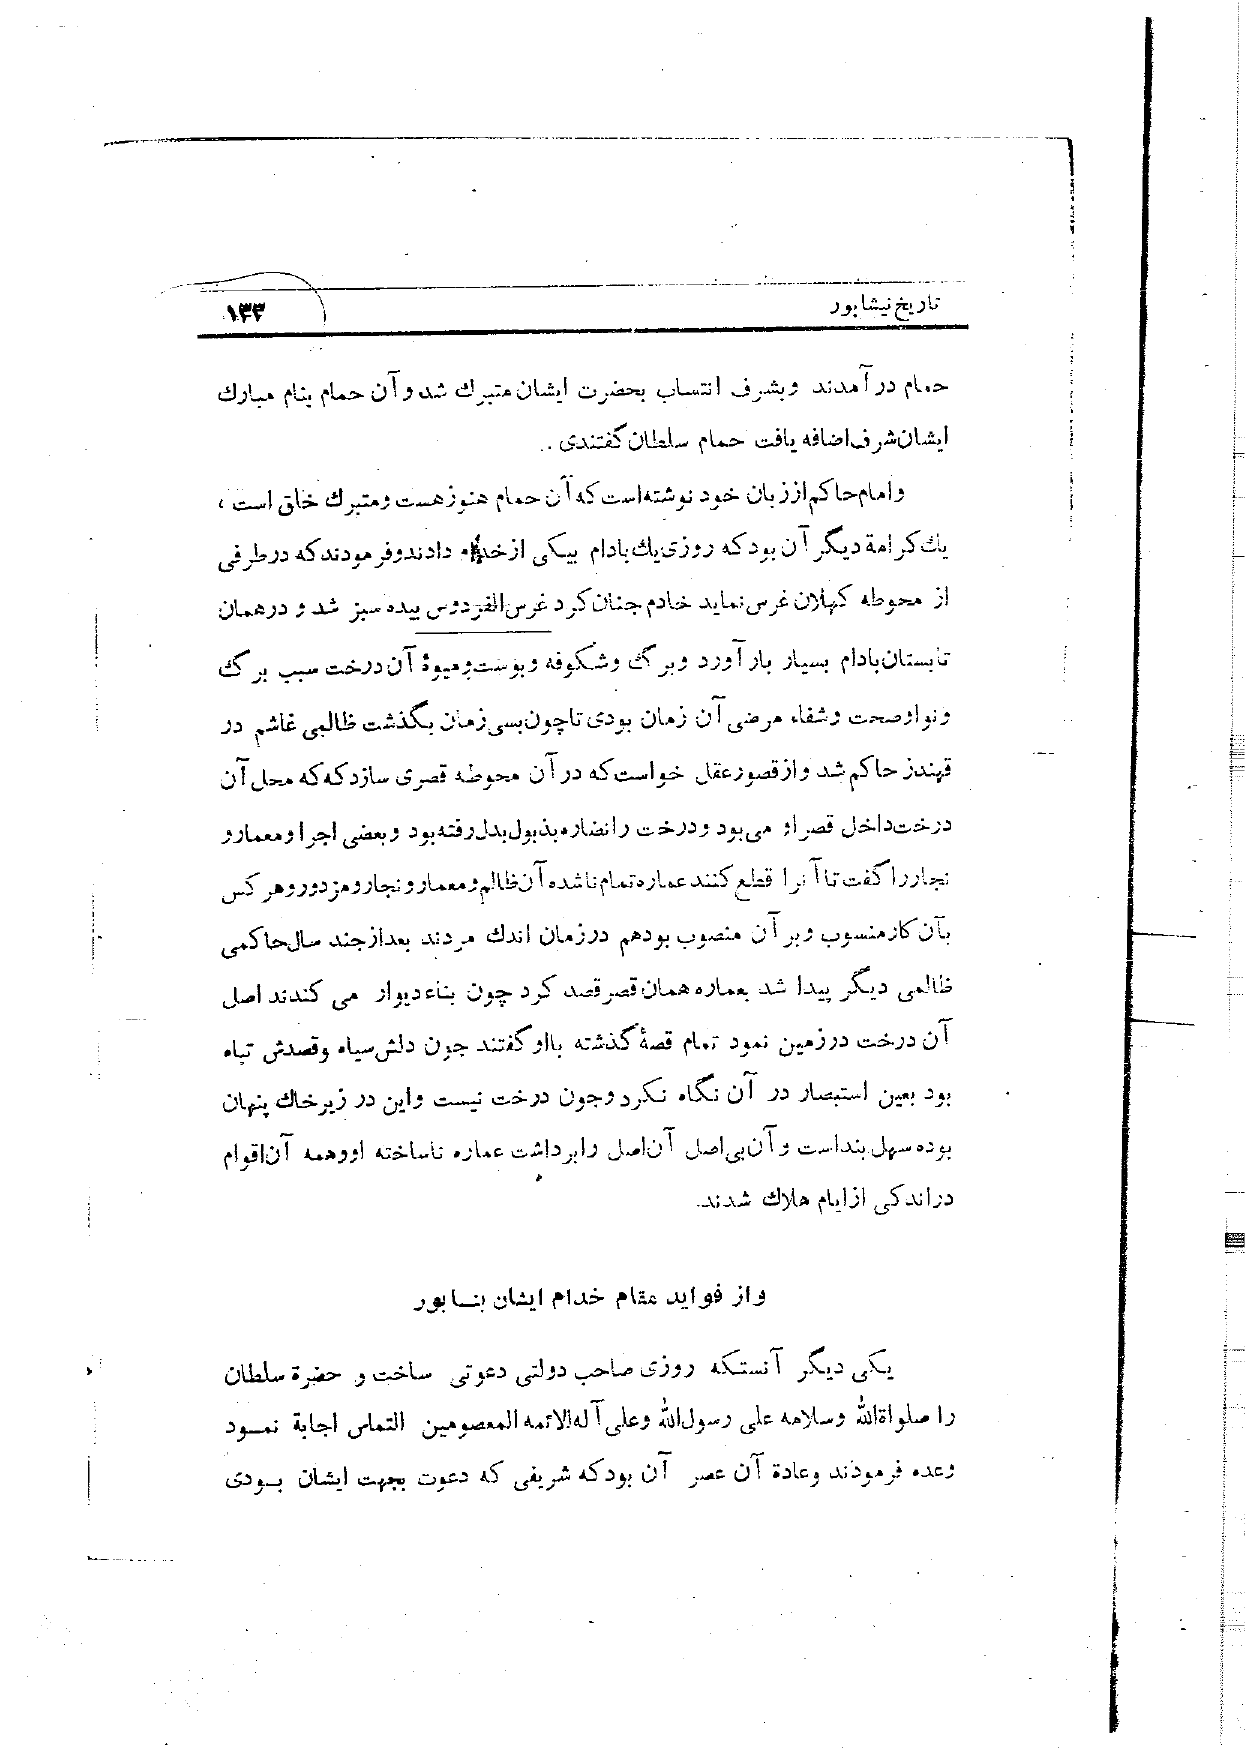 تاریخ نیشابور
۱۳۳
حمام در آمدند وبشرف انتساب بحضرت ایشان متبرك شد وآن حمام بنام مبارك
ایشان شرف اضافه یافت حمام سلطان گفتندی ..
وامام حاکم از زبان خود نوشته است که آن حمام هنوز هست ومتبرك خلق است ،
یك کرامة دیگر آن بود که روزی یك بادام بیکی از خدام دادند وفرمودند که در طرفی
از محوطه کهلان غرس نماید خادم جنان کرد غرس الفردوس بیده سبز شد و در همان
تابستان بادام بسیار بار آورد وبرگ وشکوفه وپوست ومیوۀ آن درخت سبب برگ
ونوا وصحت وشفاء مرضی آن زمان بودی تا چون بسی زمان بگذشت ظالمی غاشم در
قهندز حاکم شد واز قصور عقل خواست که در آن محوطه قصری سازد که که محل آن
درخت داخل قصر او می بود ودرخت را نضاره بذبول بدل رفته بود وبعضی اجرا ومعمار و
نجار را گفت تا آنرا قطع کنند عماره تمام ناشده آن ظالم ومعمار ونجار ومزدور وهر کس
بآن کار منسوب وبر آن منصوب بود هم در زمان اندك مردند بعد از جند سال حاکمی
ظالمی دیگر پیدا شد بعماره همان قصر قصد کرد چون بناء دیوار می کندند اصل
آن درخت در زمین نمود تمام قصۀ گذشته بااو گفتند جون دلش سیاه وقصدش تباه
بود بعین استبصار در آن نگاه نکرد وجون درخت نیست واین در زیر خاك پنهان
بوده سهل بنداست وآن بی اصل آن اصل را برداشت عماره ناساخته او وهمه آن اقوام
در اندکی از ایام هلاك شدند.
واز فواید مقام خدام ایشان بنسابور
یکی دیگر آنستکه روزی صاحب دولتی دعوتی ساخت و حضرة سلطان
را صلواة الله وسلامه علی رسول الله وعلی آله الائمه المعصومین التماس اجابة نمـود
وعده فرموذند وعادة آن عصر آن بود که شریفی که دعوت بجهت ایشان بـودی